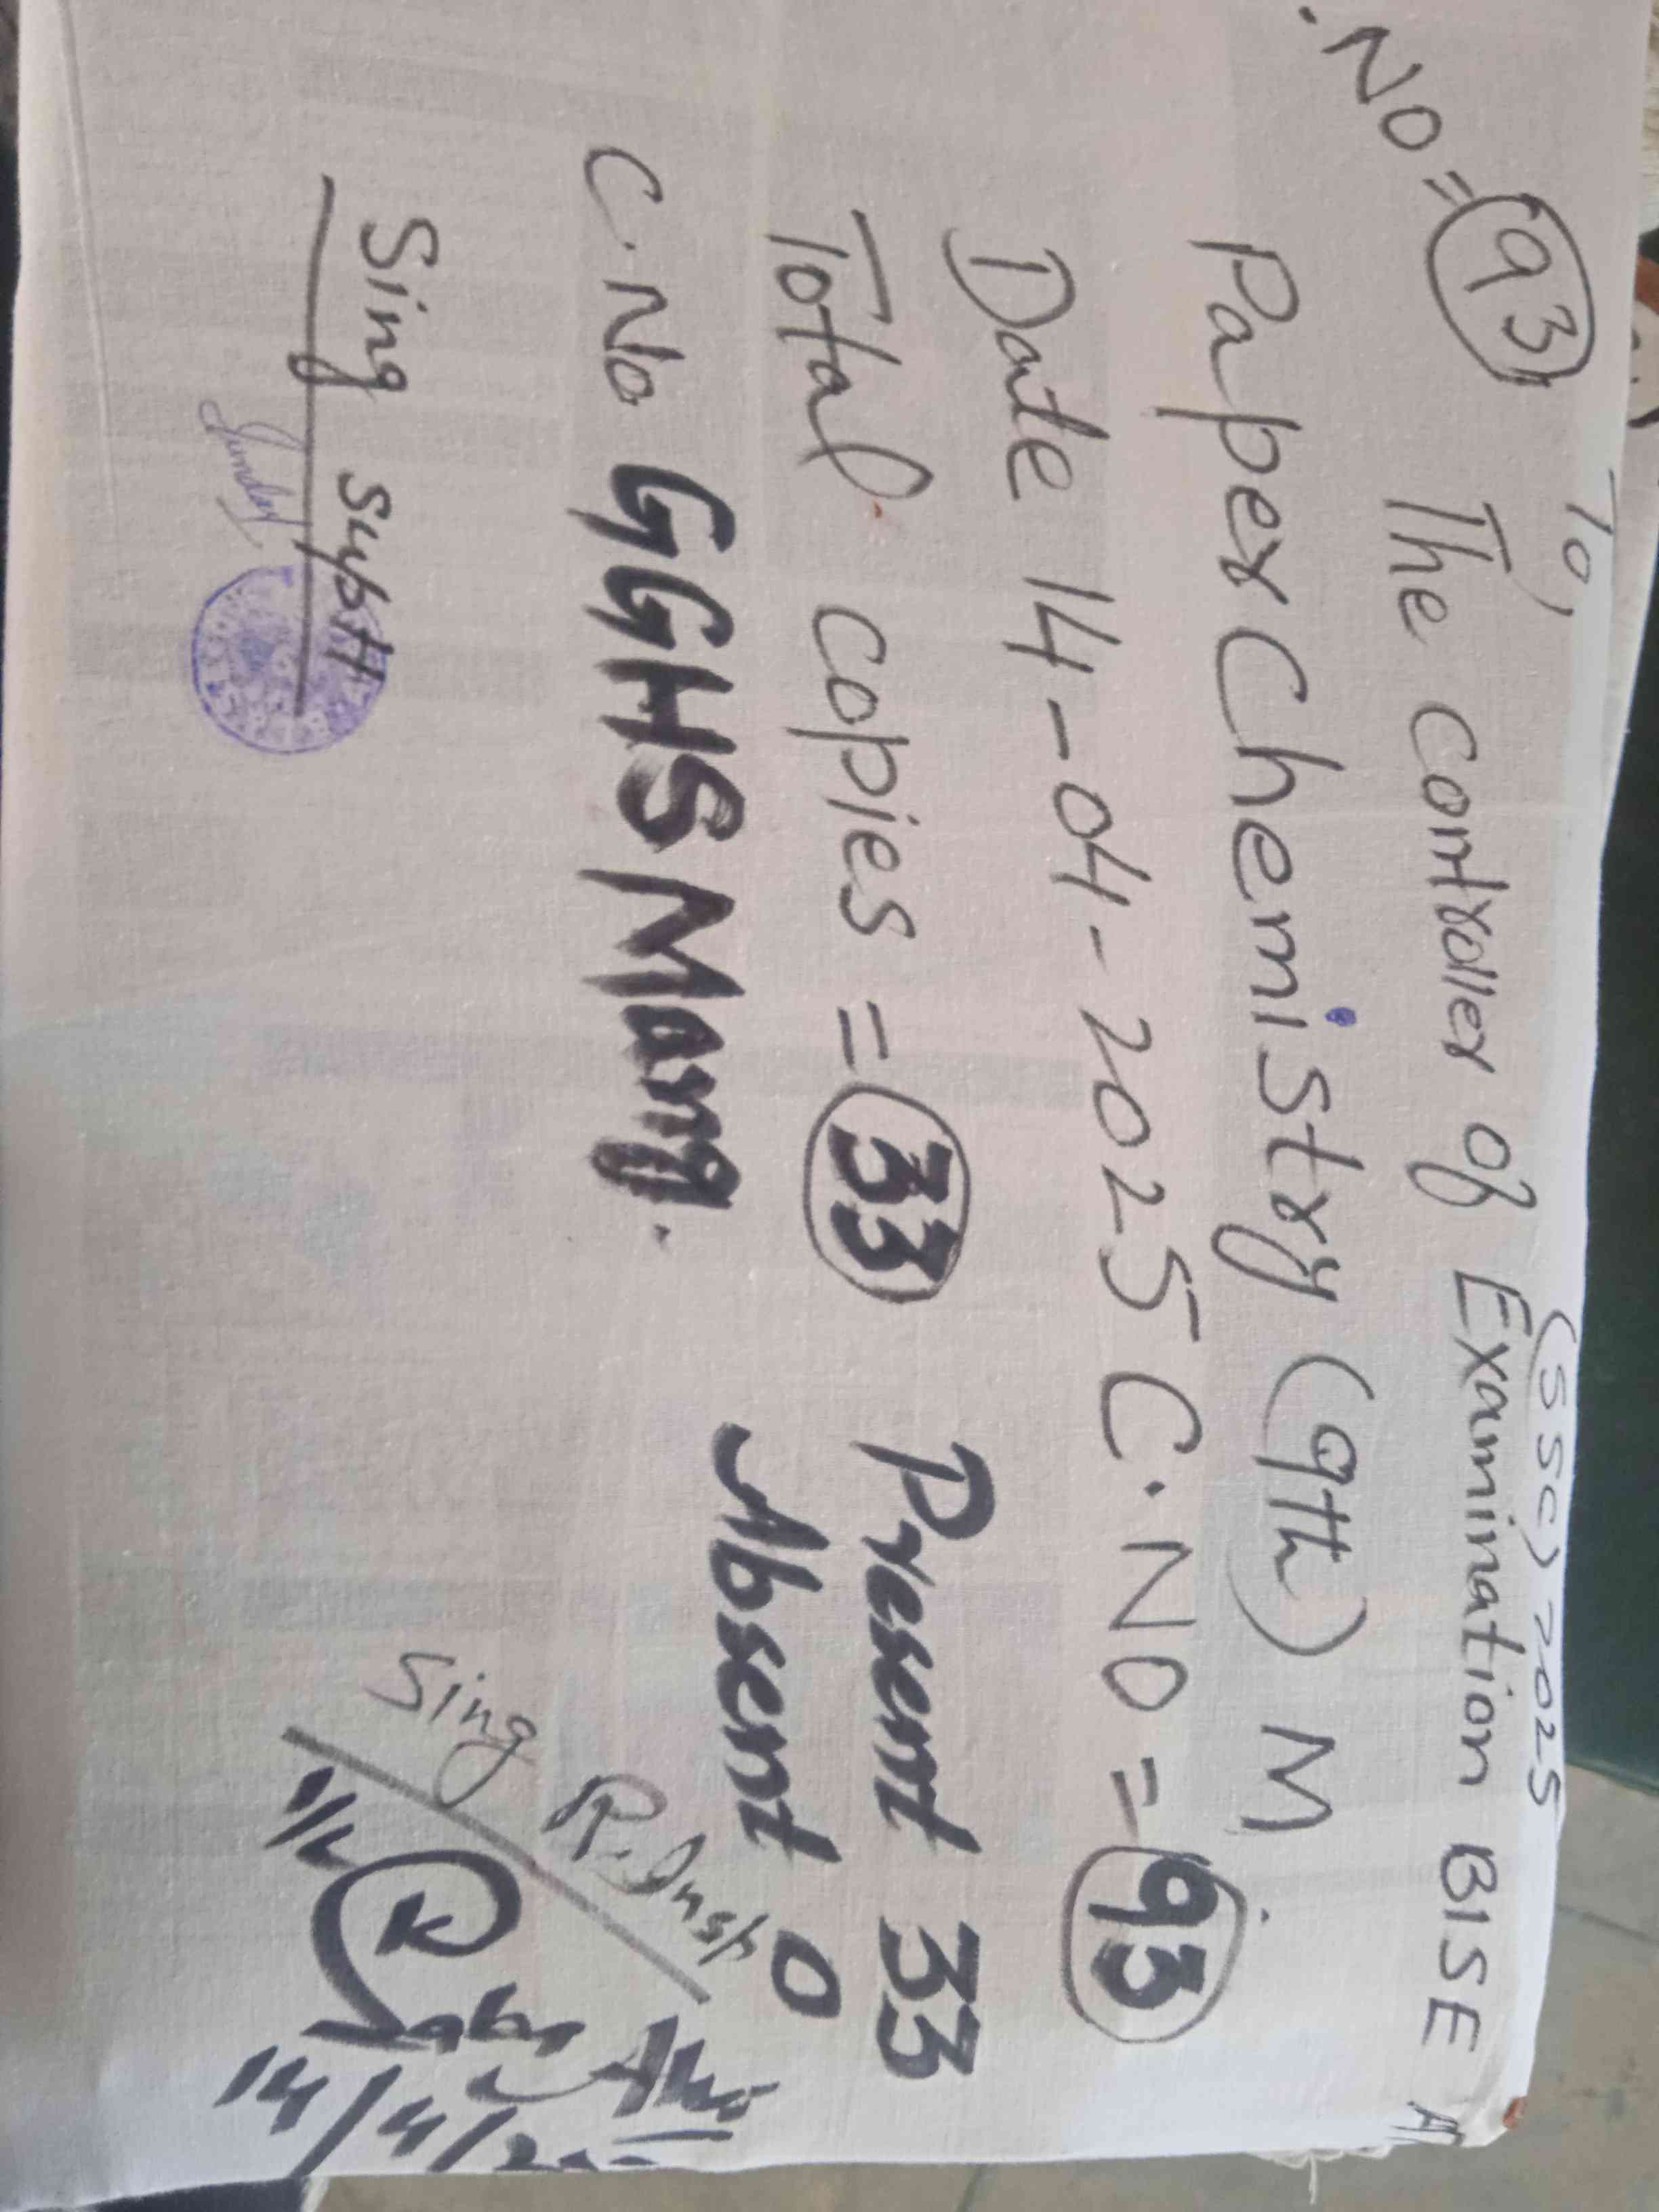 To, (SSC) 2025
.No= 93 The Controller of Examination BISE A
Paper Chemistry (9th) M
Date 14-04-2025 C.NO = 93
Total Copies = 33 Present 33
Absent 0
C.No GGHS Mang.
Sing R.Inst
Sing supdtt
14/4/